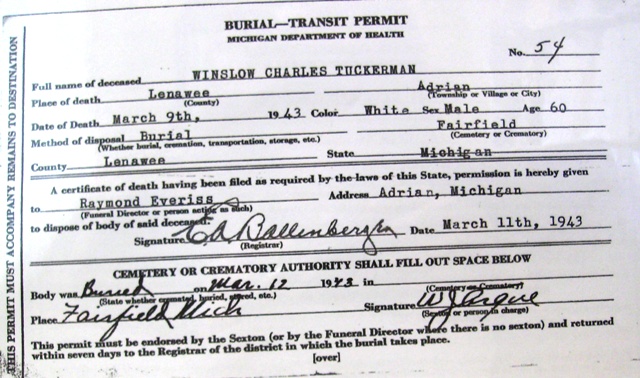 BURIAL—TRANSIT PERMIT
MICHIGAN DEPARTMENT OF HEALTH
No. 54
Full name of deceased WINSLOW CHARLES TUCKERMAN
Place of death Lenawee Adrian
(County) (Township or Village or City)
Date of Death March 9th, 1943 Color White Sex Male Age 60
Method of disposal Burial Fairfield
(Whether burial, cremation, transportation, storage, etc.) (Cemetery or Crematory)
County Lenawee State Michigan
A certificate of death having been filed as required by the laws of this State, permission is hereby given
to Raymond Everiss Address Adrian, Michigan
(Funeral Director or person acting as such)
to dispose of body of said deceased.
Signature Date March 11th, 1943
(Registrar)
CEMETERY OR CREMATORY AUTHORITY SHALL FILL OUT SPACE BELOW
Body was Buried on Mar. 12 1943 in
(State whether cremated, buried, stored, etc.) (Cemetery or Crematory)
Place Fairfield Mich Signature
(Sexton or person in charge)
This permit must be endorsed by the Sexton (or by the Funeral Director where there is no sexton) and returned
within seven days to the Registrar of the district in which the burial takes place.
[over]
THIS PERMIT MUST ACCOMPANY REMAINS TO DESTINATION